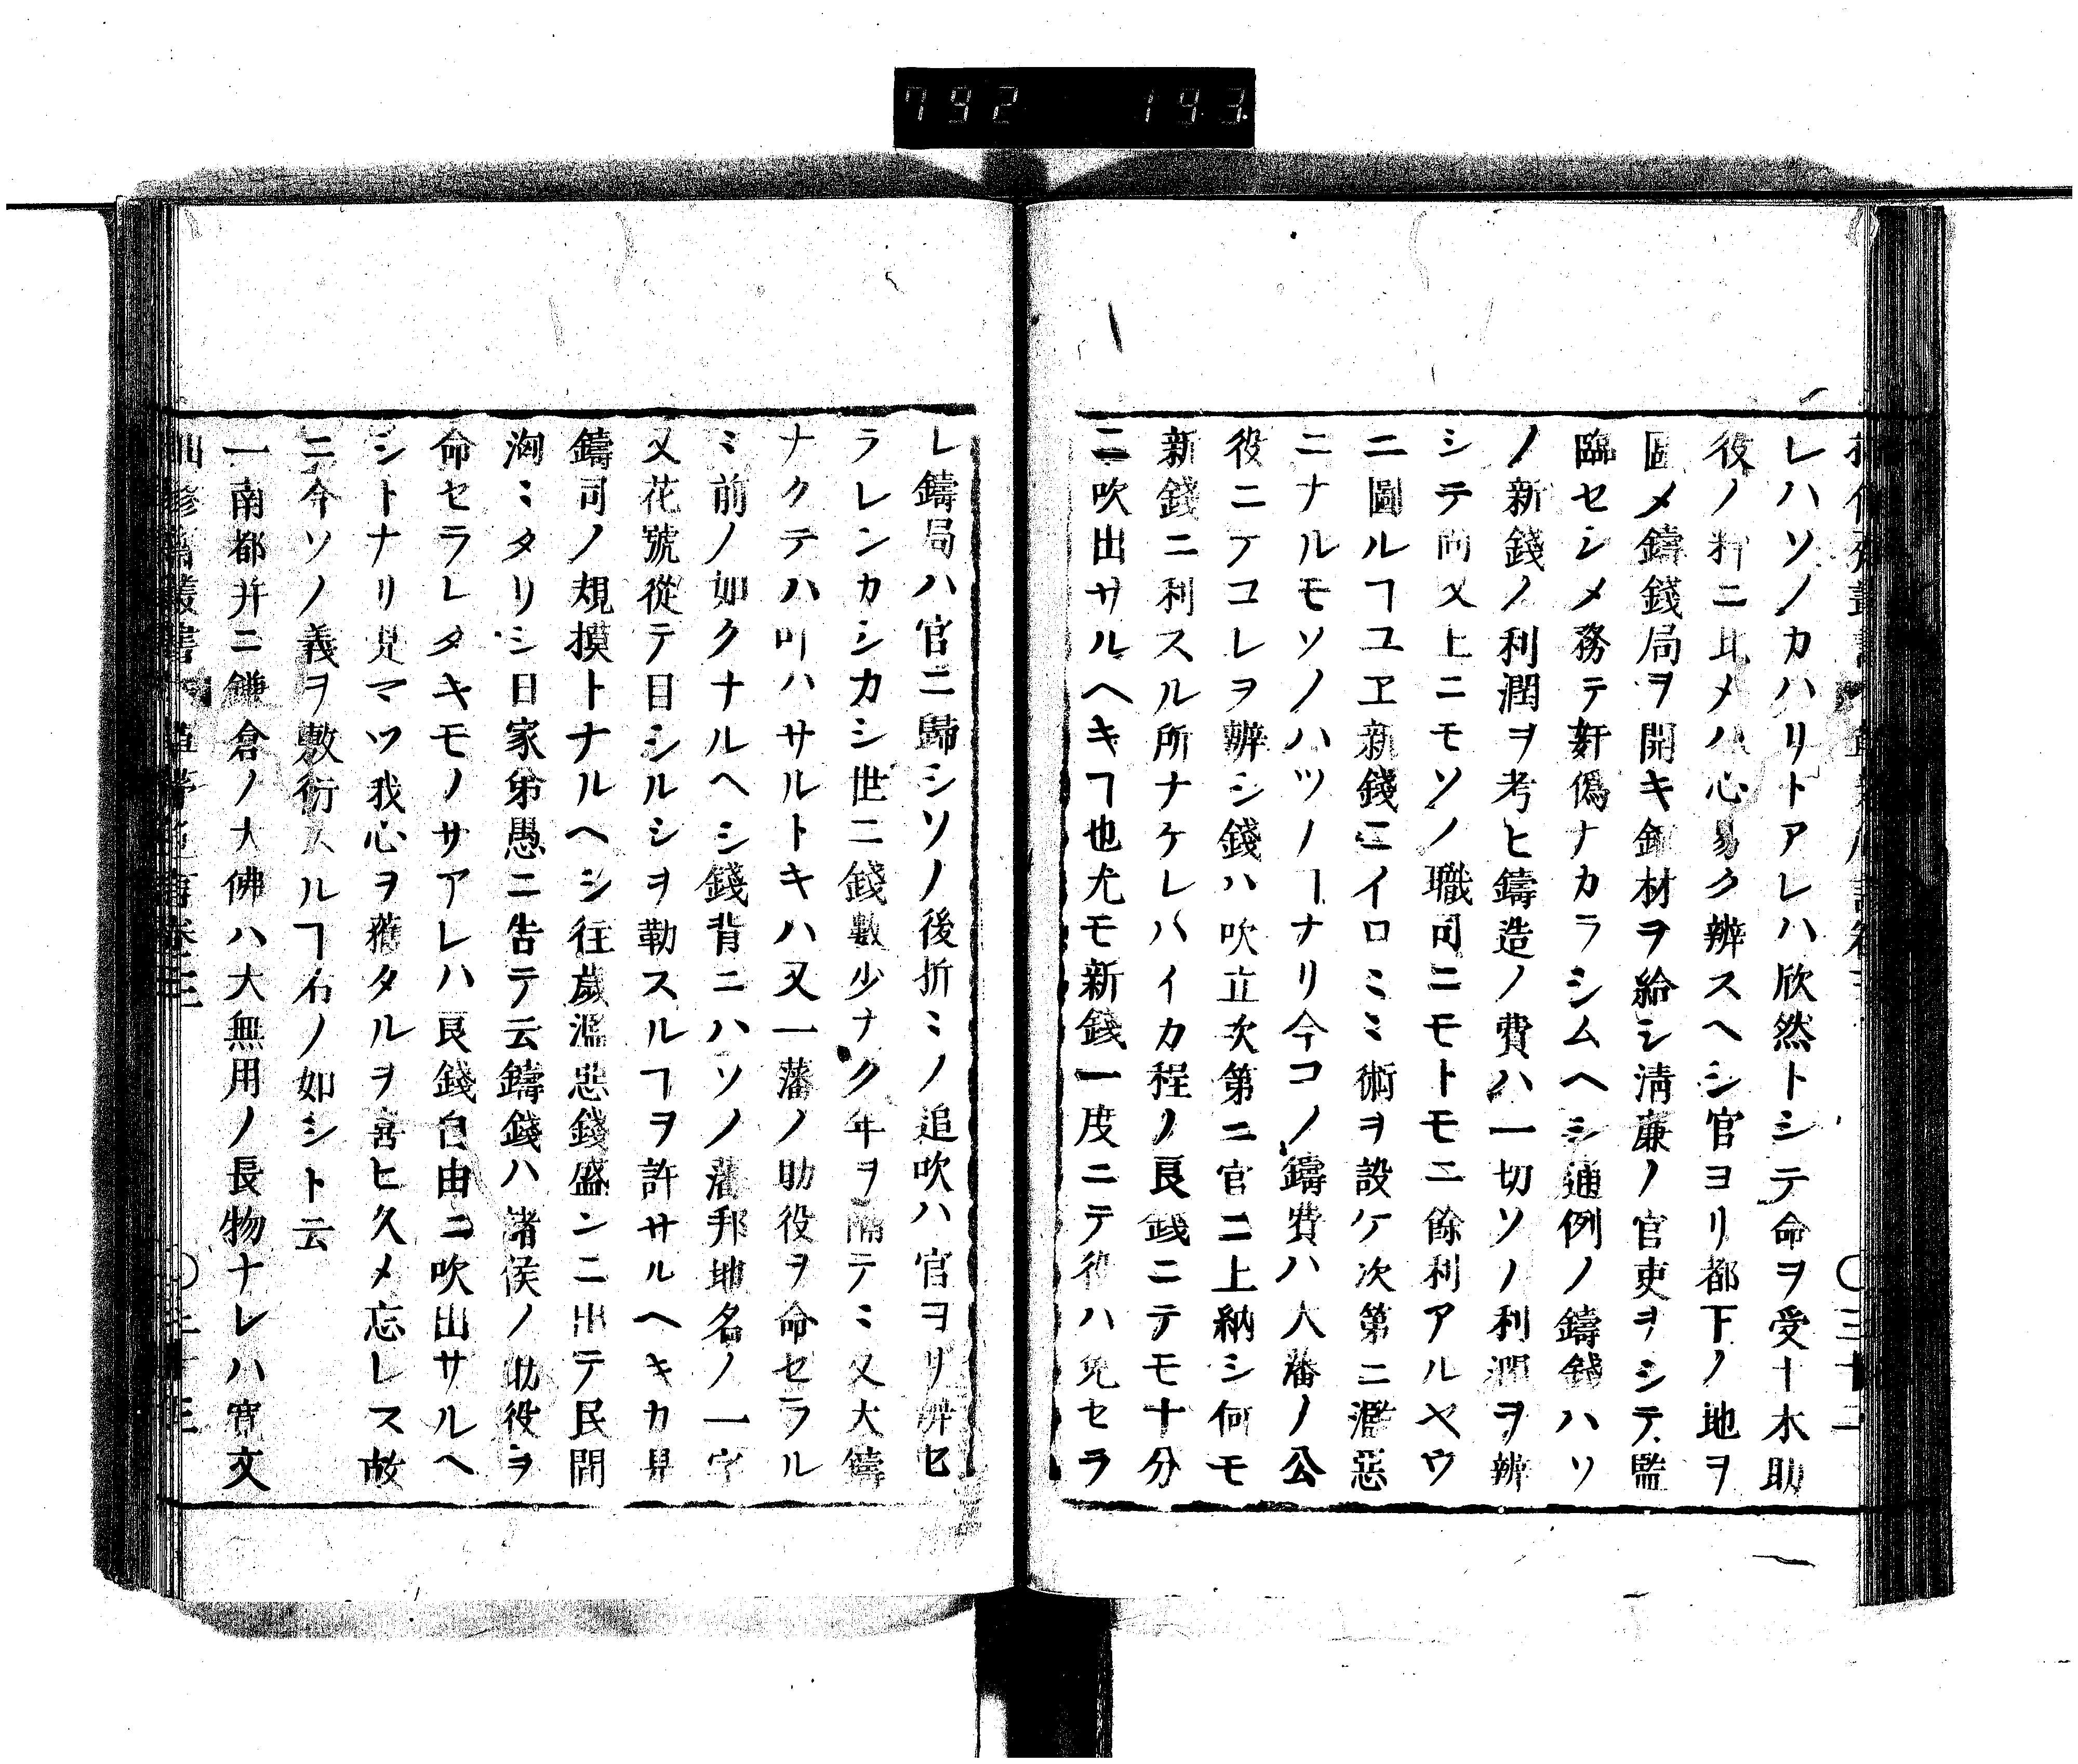 792 193
レハソノカハリトアレハ欣然トシテ命ヲ受十木助
役ノ料ニ比メハ心易ク辨スヘシ官ヨリ都下ノ地ヲ
固メ鑄錢局ヲ開キ銅材ヲ給シ淸廉ノ官吏ヲシテ監
臨セシメ務テ姧僞ナカラシムヘシ通例ノ鑄錢ハソ
ノ新錢ノ利潤ヲ考ヒ鑄造ノ費ハ一切ソノ利潤ヲ辨
シテ尚又上ニモソノ職司ニモトモニ餘利アルヤウ
ニ圖ルヿユヱ新錢ニイロミミ術ヲ設ケ次第ニ濫惡
ニナルモソノハツノヿナリ今コノ鑄費ハ大藩ノ公
役ニテコレヲ辨シ錢ハ吹立次第ニ官ニ上納シ何モ
新錢ニ利スル所ナケレハイカ程ノ良錢ニテモ十分
ニ吹出サルヘキヿ也尤モ新錢一度ニテ役ハ免セラ
レ鑄局ハ官ニ歸シソノ後折ミノ追吹ハ官ヨリ辨セ
ラレンカシカシ世ニ錢數少ナク年ヲ隔テミ又大鑄
ナクテハ叶ハサルトキハ又一藩ノ助役ヲ命セラル
ミ前ノ如クナルヘシ錢背ニハソノ藩邦地名ノ一字
又花號從テ目シルシヲ勒スルヿヲ許サルヘキカ是
鑄司ノ規摸トナルヘシ往歲濫惡錢盛ンニ出テ民間
洶ミタリシ日家弟愚ニ告テ云鑄錢ハ諸侯ノ助役ヲ
命セラレタキモノサアレハ良錢自由ニ吹出サルヘ
シトナリ是マツ我心ヲ獲タルヲ喜ヒ久メ忘レス故
ニ今ソノ義ヲ敷衍スルヿ右ノ如シト云
一南都并ニ鎌倉ノ大佛ハ大無用ノ長物ナレハ寛文